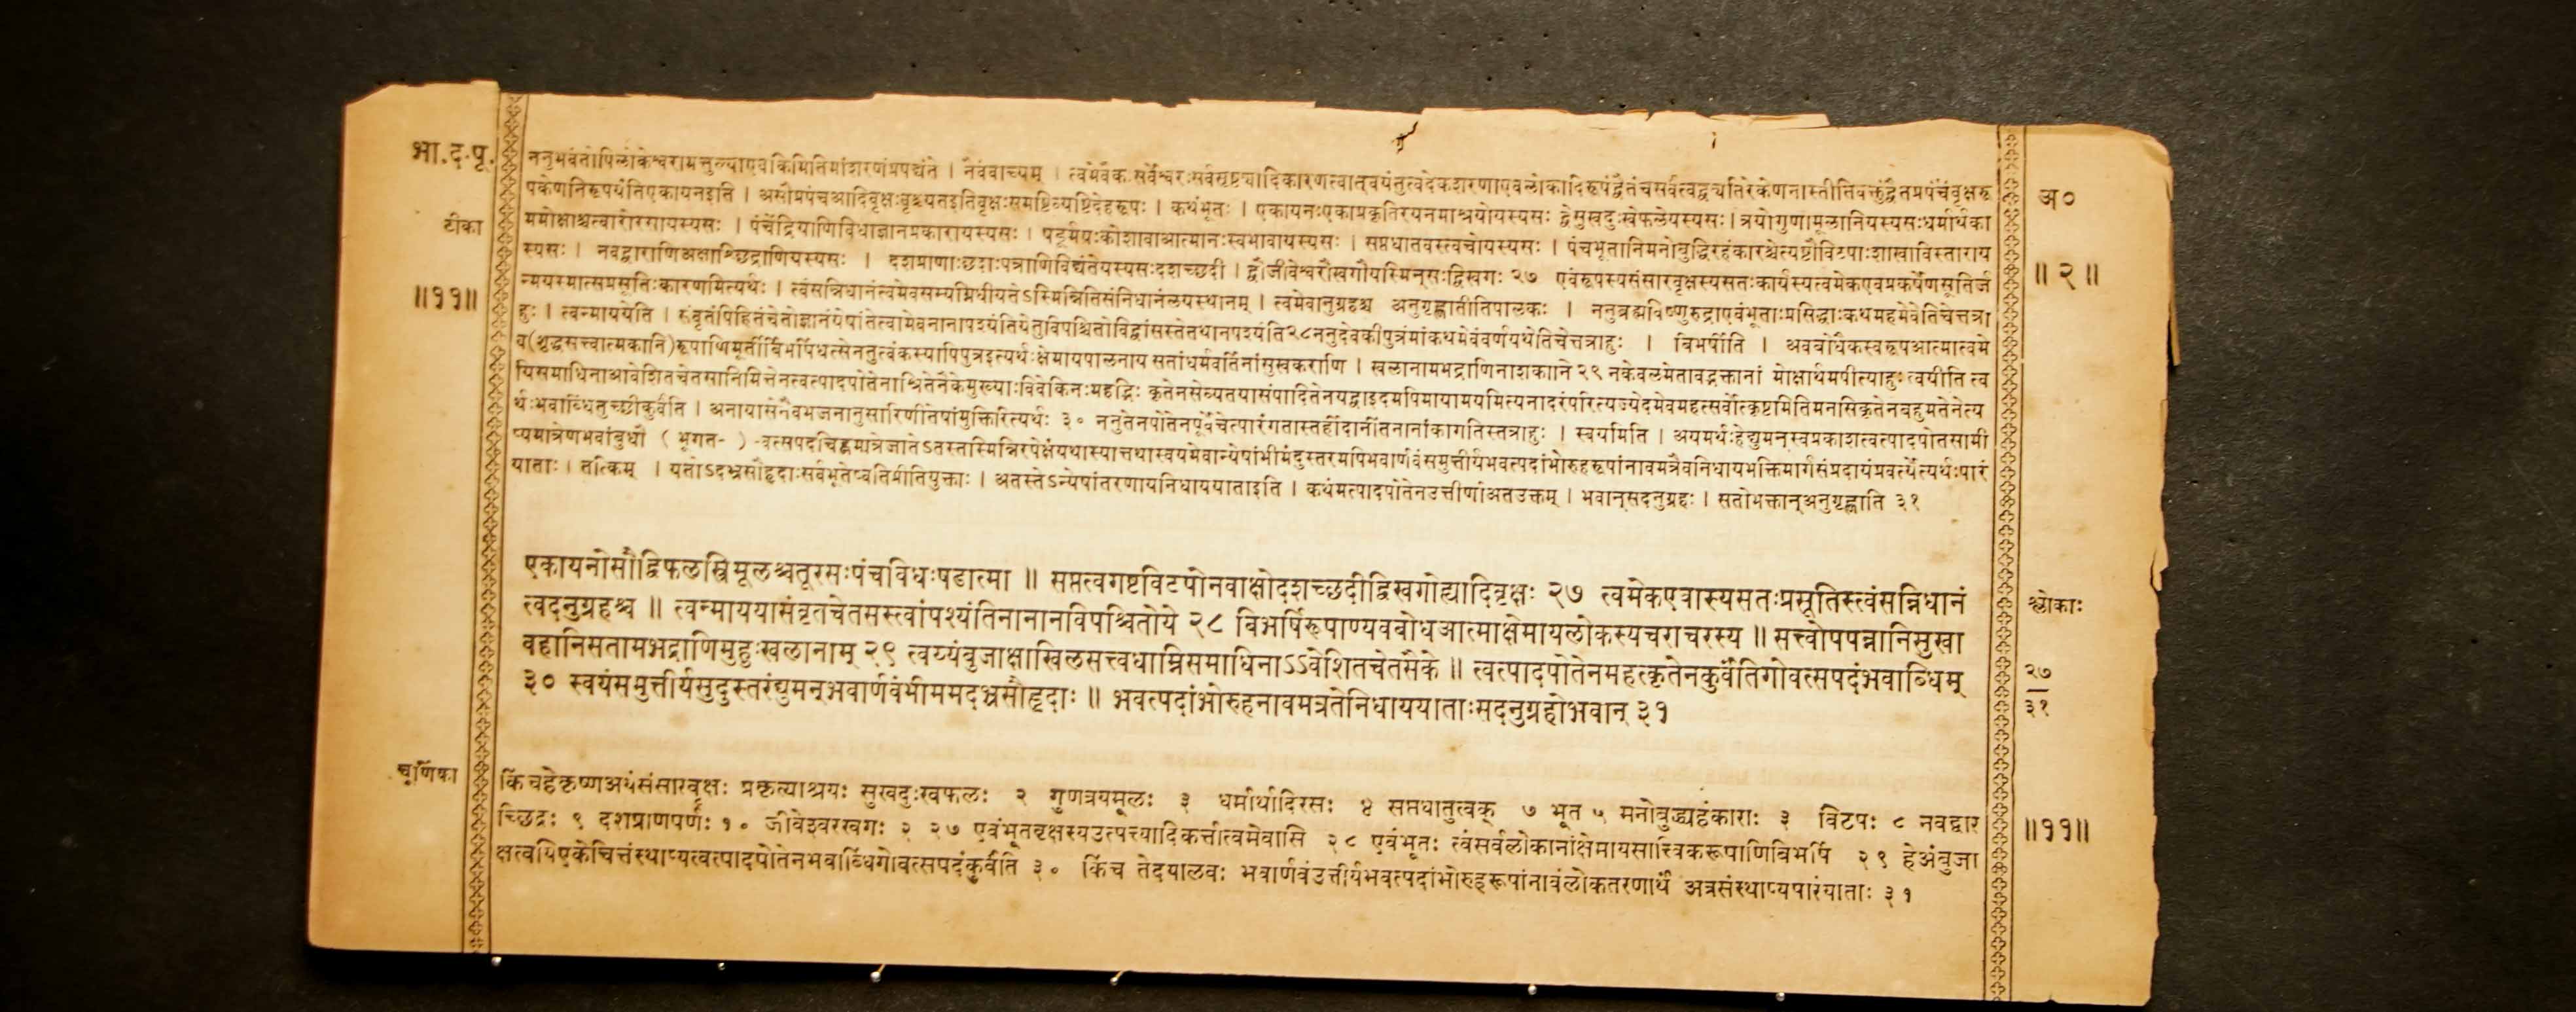 भा.द.पू.
ननुभवंतोपिलोकेश्वरामत्तुल्याएवकिमितिमांशरणंप्रपद्यंते । नैवंवाच्यम् । त्वमेवैकःसर्वेश्वरःसर्वसृष्ट्यादिकारणत्वात्वयंतुत्वदेकशरणाएवलोकादिरूपंद्वैतंचसर्वंत्वद्व्यतिरेकेणनास्तीतिवक्तुंद्वैतप्रपंचंवृक्षरू
अ०
पकेणनिरूपयंतिएकायनइति । असौप्रपंचआदिवृक्षःवृश्च्यतइतिवृक्षःसमष्टिव्यष्टिदेहरूपः । कथंभूतः । एकायनःएकाप्रकृतिरयनमाश्रयोयस्यसः द्वेसुखदुःखेफलेयस्यसः। त्रयोगुणामूलानियस्यसःधर्मार्थका
टीका
ममोक्षाश्चत्वारोरसायस्यसः । पंचेंद्रियाणिविधाज्ञानप्रकारायस्यसः । षडूर्मयःकोशावाआत्मानःस्वभावायस्यसः । सप्तधातवस्त्वचोयस्यसः । पंचभूतानिमनोबुद्धिरहंकारश्चेत्यष्टौविटपाःशाखाविस्ताराय
स्यसः । नवद्वाराणिअक्षाश्छिद्राणियस्यसः । दशप्राणाःछदाःपत्राणिविद्यंतेयस्यसःदशच्छदी । द्वौजीवेश्वरौखगौयस्मिन्सःद्विखगः २७ एवंरूपस्यसंसारवृक्षस्यसतःकार्यस्यत्वमेकएवप्रकर्षेणसूतिर्ज
॥ २ ॥
॥११॥
न्मयस्मात्सप्रसूतिःकारणमित्यर्थः । त्वंसन्निधानंत्वमेवसम्यग्निधीयतेऽस्मिन्नितिसंनिधानंलयस्थानम् । त्वमेवानुग्रहश्च अनुगृह्णातीतिपालकः । ननुब्रह्मविष्णुरुद्राएवंभूताःप्रसिद्धाःकथमहमेवेतिचेत्तत्रा
हुः । त्वन्माययेति । संवृतंपिहितंचेतोज्ञानंयेषांतेत्वामेवनानापश्यंतियेतुविपश्चितोविद्वांसस्तेतथानपश्यंति२८ननुदेवकीपुत्रंमांकथमेवंवर्णयथेतिचेत्तत्राहुः । बिभर्षीति । अवबोधैकस्वरूपआत्मात्वमे
व(शुद्धसत्त्वात्मकानि)रूपाणिमूर्तीर्बिभर्षिधत्सेननुत्वंकस्यापिपुत्रइत्यर्थःक्षेमायपालनाय सतांधर्मवर्तिनांसुखकराणि । खलानामभद्राणिनाशकानि २९ नकेवलमेतावद्भक्तानां मोक्षार्थमपीत्याहुः त्वयीति त्व
यिसमाधिनाआवेशितचेतसानिमित्तेनत्वत्पादपोतेनाश्रितेनैकेमुख्याःविवेकिनःमहद्भिः कृतेनसेव्यतयासंपादितेनयद्वाइदमपिमायामयमित्यनादरंपरित्यज्येदमेवमहत्सर्वोत्कृष्टमितिमनसिकृतेनबहुमतेनेत्य
र्थःभवाब्धिंतुच्छीकुर्वंति । अनायासेनैवभजनानुसारिणीतेषांमुक्तिरित्यर्थः ३० ननुतेनपोतेनपूर्वेचेत्पारंगतास्तर्हीदानींतनानांकागतिस्तत्राहुः । स्वयमिति । अयमर्थःहेद्युमन्स्वप्रकाशत्वत्पादपोतसामी
प्यमात्रेणभवांबुधौ ( भूगत- ) -वत्सपदचिह्नमात्रेजातेऽतस्तस्मिन्निरपेक्षंयथास्यात्तथास्वयमेवान्येषांभीमंदुस्तरमपिभवार्णवंसमुत्तीर्यभवत्पदांभोरुहरूपांनावमत्रैवनिधायभक्तिमार्गसंप्रदायंप्रवर्त्येत्यर्थःपारं
याताः । तत्किम् । यतोऽदभ्रसौहृदाःसर्वभूतेष्वतिप्रीतियुक्ताः । अतस्तेऽन्येषांतरणायनिधाययाताइति । कथंमत्पादपोतेनउत्तीर्णाअतउक्तम् । भवान्सदनुग्रहः । सतोभक्तान्अनुगृह्णाति ३१
एकायनोसौद्विफलस्त्रिमूलश्चतूरसःपंचविधःषडात्मा ॥ सप्तत्वगष्टविटपोनवाक्षोदशच्छदीद्विखगोह्यादिवृक्षः २७ त्वमेकएवास्यसतःप्रसूतिस्त्वंसन्निधानं
त्वदनुग्रहश्च ॥ त्वन्माययासंवृतचेतसस्त्वांपश्यंतिनानानविपश्चितोये २८ बिभर्षिरूपाण्यवबोधआत्माक्षेमायलोकस्यचराचरस्य ॥ सत्त्वोपपन्नानिसुखा
श्लोकाः
वहानिसतामभद्राणिमुहुःखलानाम् २९ त्वय्यंबुजाक्षाखिलसत्त्वधाम्निसमाधिनाऽऽवेशितचेतसैके ॥ त्वत्पादपोतेनमहत्कृतेनकुर्वंतिगोवत्सपदंभवाब्धिम्
२७
३१
३० स्वयंसमुत्तीर्यसुदुस्तरंद्युमन्भवार्णवंभीममदभ्रसौहृदाः ॥ भवत्पदांभोरुहनावमत्रतेनिधाययाताःसदनुग्रहोभवान् ३१
चूर्णिका
किंचहेकृष्णअयंसंसारवृक्षः प्रकृत्याश्रयः सुखदुःखफलः २ गुणत्रयमूलः ३ धर्मार्थादिरसः ४ सप्तधातुत्वक् ७ भूत ५ मनोबुद्ध्यहंकाराः ३ विटपः ८ नवद्वार
च्छिद्रः ९ दशप्राणपर्णः १० जीवेश्वरखगः २ २७ एवंभूतवृक्षस्यउत्पत्त्यादिकर्त्तात्वमेवासि २८ एवंभूतः त्वंसर्वलोकानांक्षेमायसात्त्विकरूपाणिबिभर्षि २९ हेअंबुजा
॥११॥
क्षत्वयिएकेचित्तंस्थाप्यत्वत्पादपोतेनभवाब्धिंगोवत्सपदंकुर्वंति ३० किंच तेदयालवः भवार्णवंउत्तीर्यभवत्पदांभोरुहरूपांनावंलोकतरणार्थं अत्रसंस्थाप्यपारंयाताः ३१